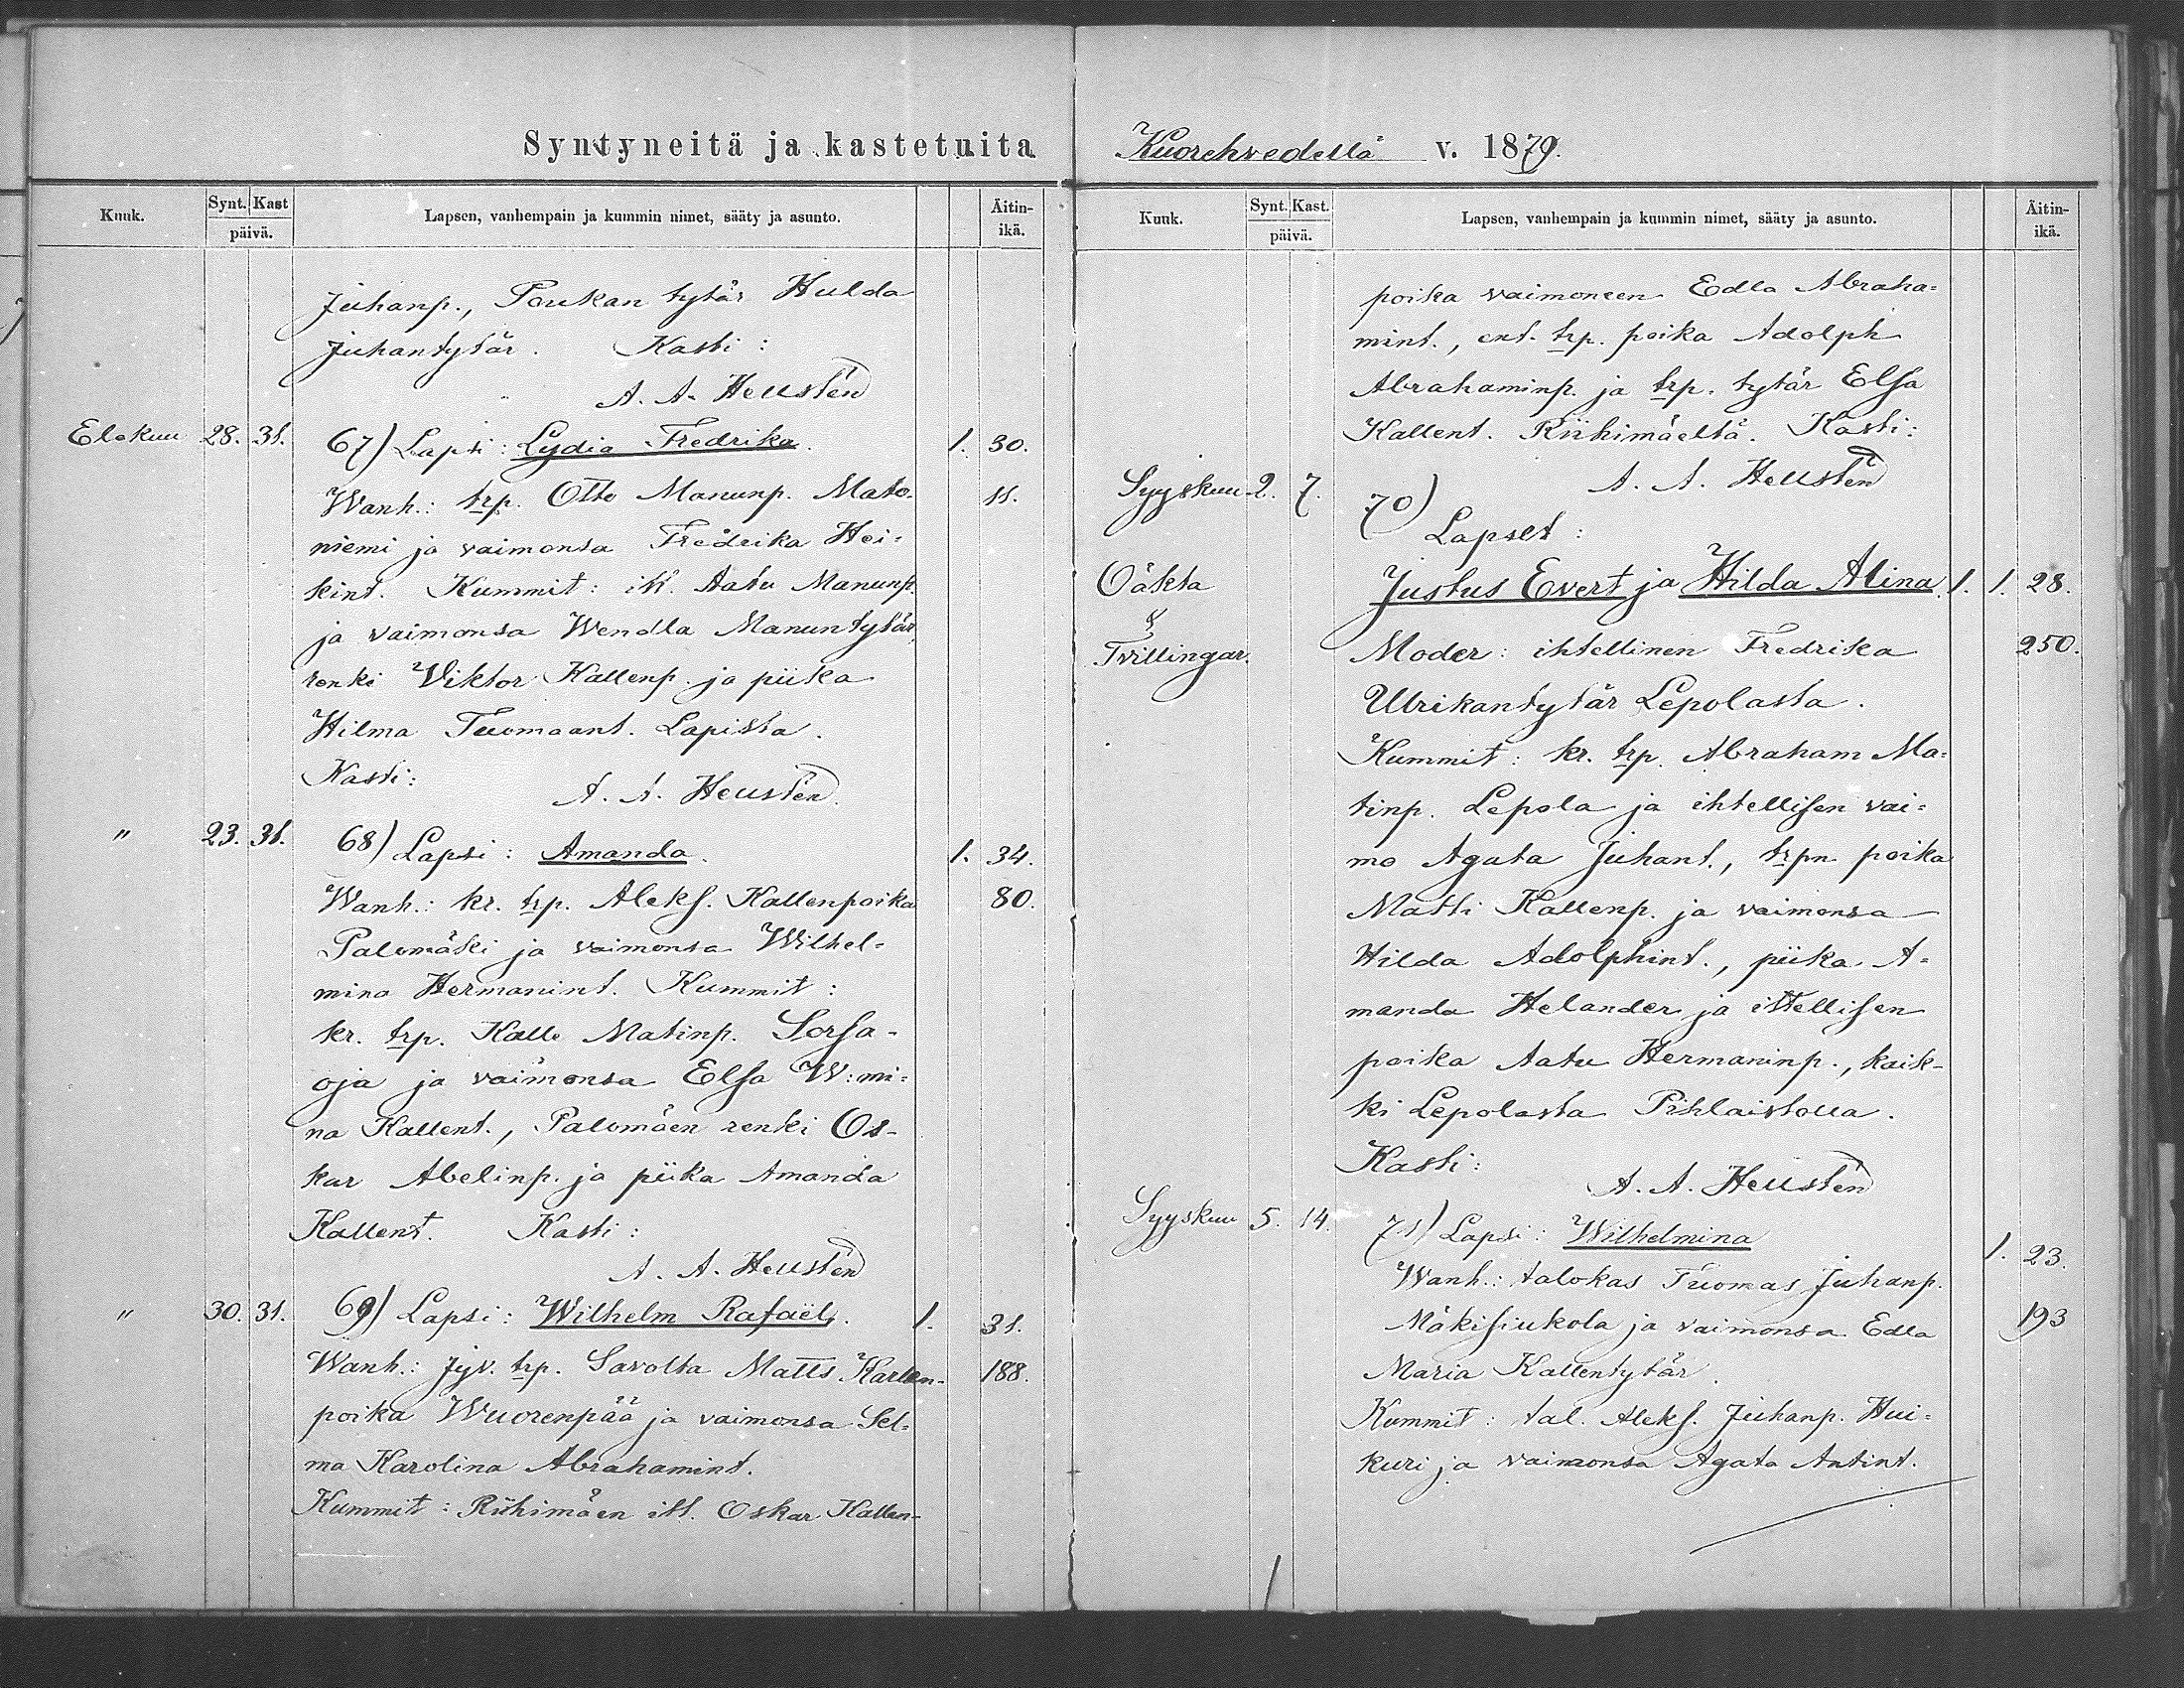 Syntyneitä ja kastetuita
Kuuk.
Synt. Kast
päivä.
Lapsen, vanhempain ja kummin nimet, sääty ja asunto.
Äitin-
ikä.
Juhanp., Poukan tytär Hulda
Juhantytär. Kasti:
A. A. Hellstén
Elokuu 28. 31. 67) Lapsi: Lydia Fredrika. 1. 30.
Wanh.: trp. Otto Manunp. Mato- 11.
niemi ja vaimonsa Fredrika Hei-
kint. Kummit: itl. Aatu Manunp.
ja vaimonsa Wendla Manuntytär,
renki Viktor Kallenp. ja piika
Hilma Tuomaant. Lapista.
Kasti: A. A. Hellstén.
" 23. 31. 68) Lapsi: Amanda. 1. 34.
Wanh.: kr. trp. Aleks. Kallenpoika 80.
Palomäki ja vaimonsa Wilhel-
mina Hermanint. Kummit:
kr. trp. Kalle Matinp. Sorsa-
oja ja vaimonsa Elsa W:mi-
na Kallent., Palomäen renki Os-
kar Abelinp. ja piika Amanda
Kallent. Kasti:
A. A. Hellstén
" 30. 31. 69) Lapsi: Wilhelm Rafaël. 1. 31.
Wanh.: Jyv. trp. Savolta Matts Karlen- 188.
poika Wuorenpää ja vaimonsa Sel-
ma Karolina Abrahamint.
Kummit: Riihimäen itl. Oskar Kallen-
Kuorehvedellä v. 1879.
Kuuk.
Synt. Kast.
päivä.
Lapsen, vanhempain ja kummin nimet, sääty ja asunto.
Äitin-
ikä.
poika vaimoneen Edla Abraha-
mint., ent. trp. poika Adolph
Abrahaminp. ja trp. tytär Elsa
Kallent. Riihimäeltä. Kasti:
A. A. Hellstén
Syyskuu 2. 7. 70)
Lapset:
Oäkta Justus Evert ja Hilda Alina. 1. 1. 28.
&
Tvillingar. Moder: ihtellinen Fredrika 250.
Ulrikantytär Lepolasta.
Kummit: kr. trp. Abraham Ma-
tinp. Lepola ja ihtellisen vai-
mo Agata Juhant., trpn poika
Matti Kallenp. ja vaimonsa
Hilda Adolphint., piika A-
manda Helander ja ittellisen
poika Aatu Hermaninp., kaik-
ki Lepolasta Pihlaistolla.
Kasti:
A. A. Hellstén
Syyskuu 5. 14. 71) Lapsi: Wilhelmina 1. 23.
Wanh.: talokas Tuomas Juhanp.
Mäkisiukola ja vaimonsa Edla 193
Maria Kallentytär.
Kummit: tal. Aleks. Juhanp. Hui-
kuri ja vaimonsa Agata Antint.